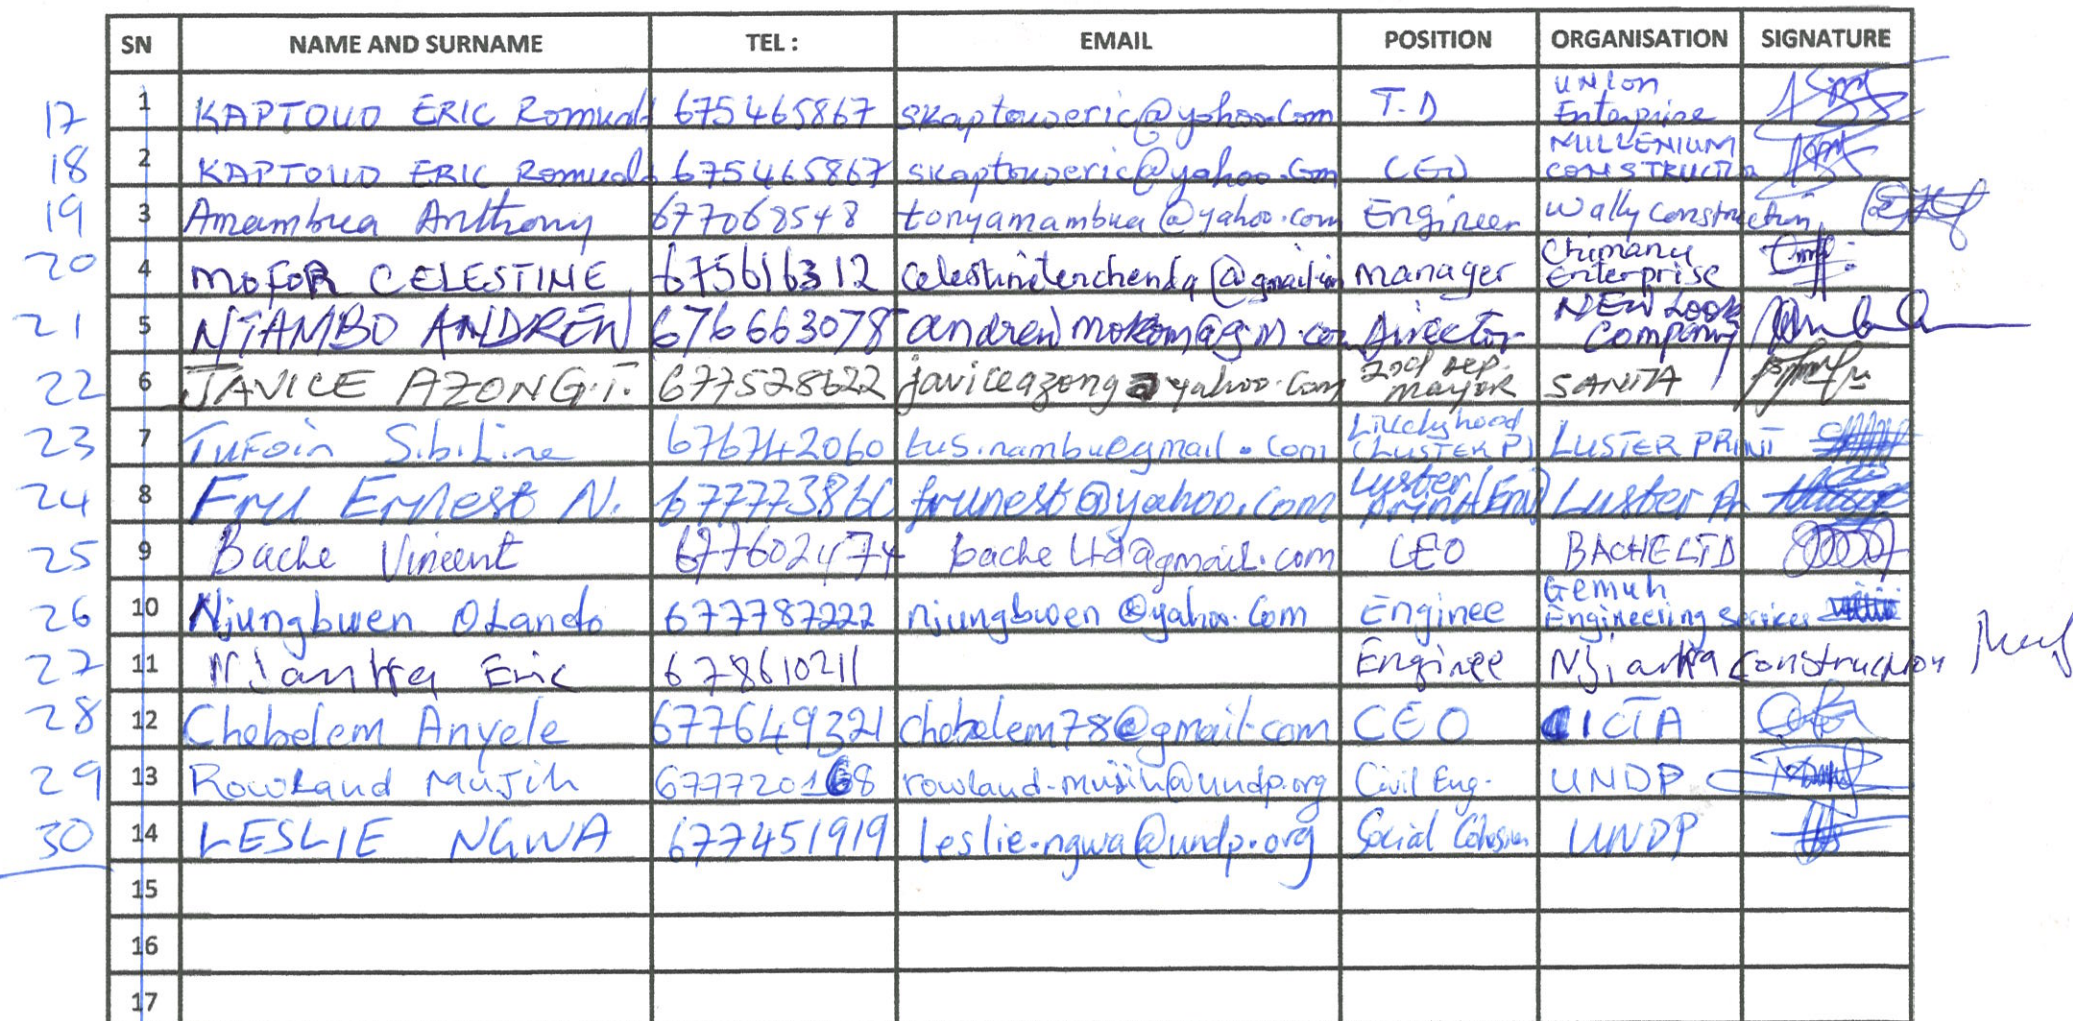 SN NAME AND SURNAME TEL : EMAIL POSITION ORGANISATION SIGNATURE
17 1 KAPTOUO ERIC Romuald 675465867 skaptouoeric@yahoo.com T.D Union Enterprise
18 2 KAPTOUO ERIC Romuald 675465867 skaptouoeric@yahoo.com CEO MILLENIUM CONSTRUCTIO
19 3 Amambua Anthony 677068548 tonyamambua@yahoo.com Engineer Wally Construction
20 4 MOFOR CELESTINE 675616312 manager Chimanu Enterprise
21 5 NJAMBO ANDREW 676663078 Director NEW LOOK Company
22 6 JAVICE AZONG.T. 677528622 javiceazong@yahoo.com 2nd dep. mayor SANTA
23 7 Tufoin Sibiline 676742060 tus.nambu@gmail.com (LUSTER P) LUSTER PRINT
24 8 Fru Ernest N. frunest@yahoo.com Luster Print Luster Pr
25 9 Bache Vincent 677602474 bacheltd@gmail.com CEO BACHE LTD
26 10 Njungbwen Olando 677787222 njungbwen@yahoo.com Enginee Gemuh Engineering Services
27 11 Eric 678610211 Enginee Construction
28 12 Chebelem Anyele 677649321 chebelem78@gmail.com CEO CICTA
29 13 Rowland Mujih 677720168 rowland.mujih@undp.org Civil Eng. UNDP
30 14 LESLIE NGWA 677451919 leslie.ngwa@undp.org Social Cohesion UNDP
15
16
17